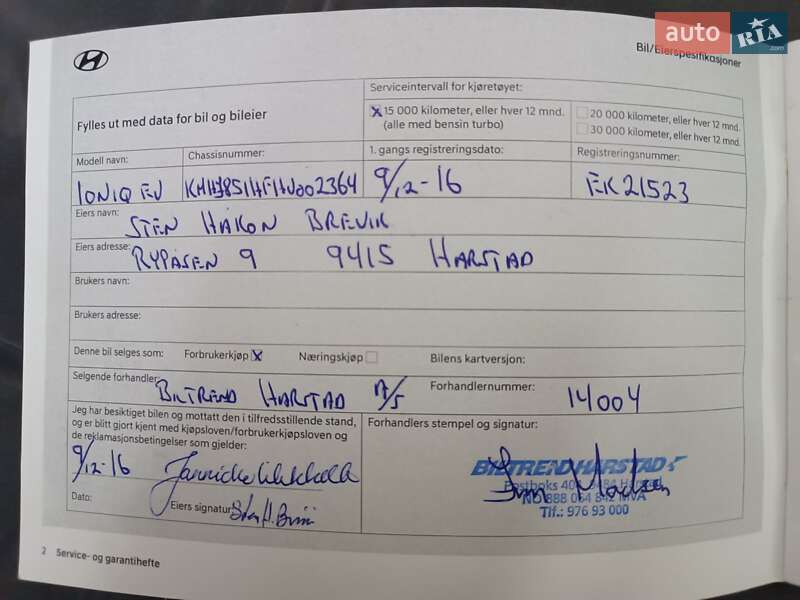 auto RIA .com
Bil/Eierspesifikasjoner
Fylles ut med data for bil og bileier
Serviceintervall for kjøretøyet:
15 000 kilometer, eller hver 12 mnd.
(alle med bensin turbo)
20 000 kilometer, eller hver 12 mnd.
30 000 kilometer, eller hver 12 mnd.
Modell navn:
Chassisnummer:
1. gangs registreringsdato:
Registreringsnummer:
IONIQ EV
9/12-16
EK21523
Eiers navn:
STEN HÅKON BREVIK
Eiers adresse:
RYPÅSEN 9 9415 HARSTAD
Brukers navn:
Brukers adresse:
Denne bil selges som: Forbrukerkjøp X Næringskjøp Bilens kartversjon:
Selgende forhandler: BILTREND HARSTAD A/S Forhandlernummer: 14004
Jeg har besiktiget bilen og mottatt den i tilfredsstillende stand,
og er blitt gjort kjent med kjøpsloven/forbrukerkjøpsloven og
de reklamasjonsbetingelser som gjelder:
Forhandlers stempel og signatur:
9/12-16
BILTREND HARSTAD
Postboks 40
NO 888 064 842 MVA
Tlf.: 976 93 000
Dato:
Eiers signatur
2 Service- og garantihefte